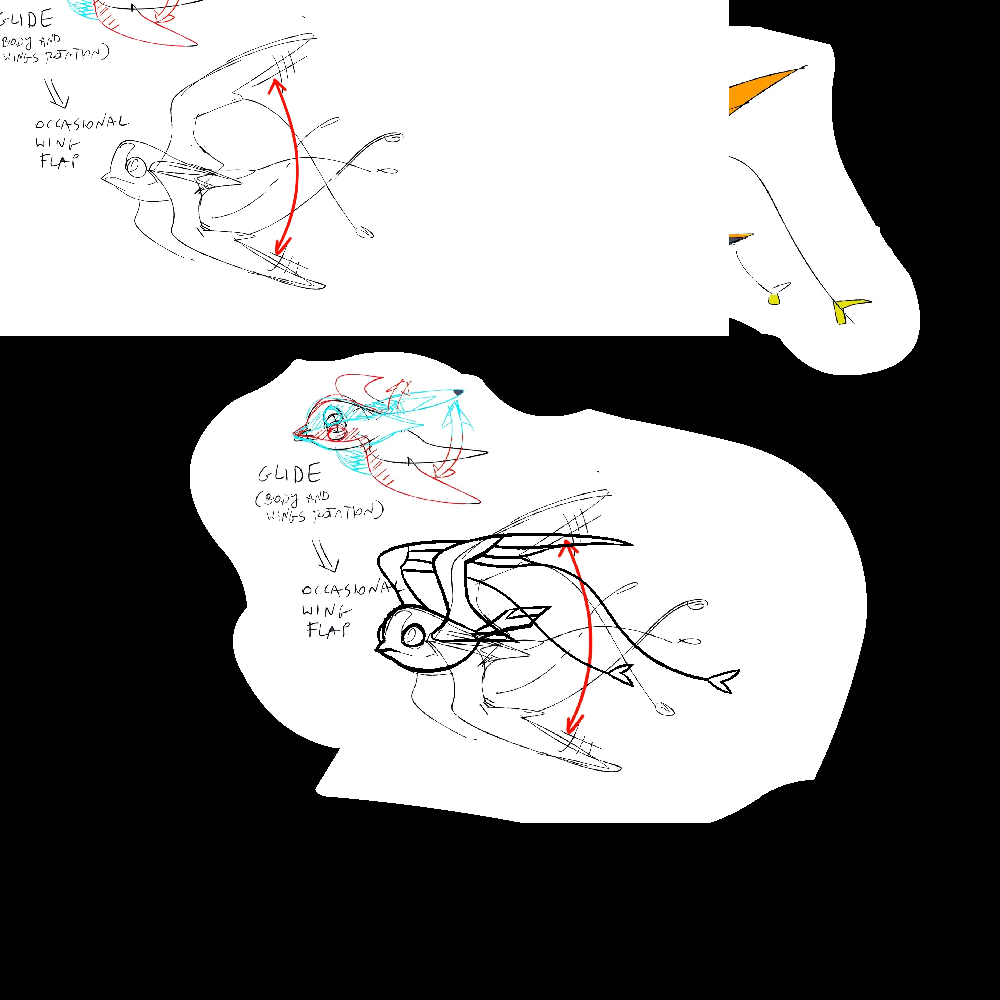 GLIDE
(BODY AND
WINGS ROTATION)
OCCASIONAL
WING
FLAP
GLIDE
(BODY AND
WINGS ROTATION)
OCCASIONAL
WING
FLAP